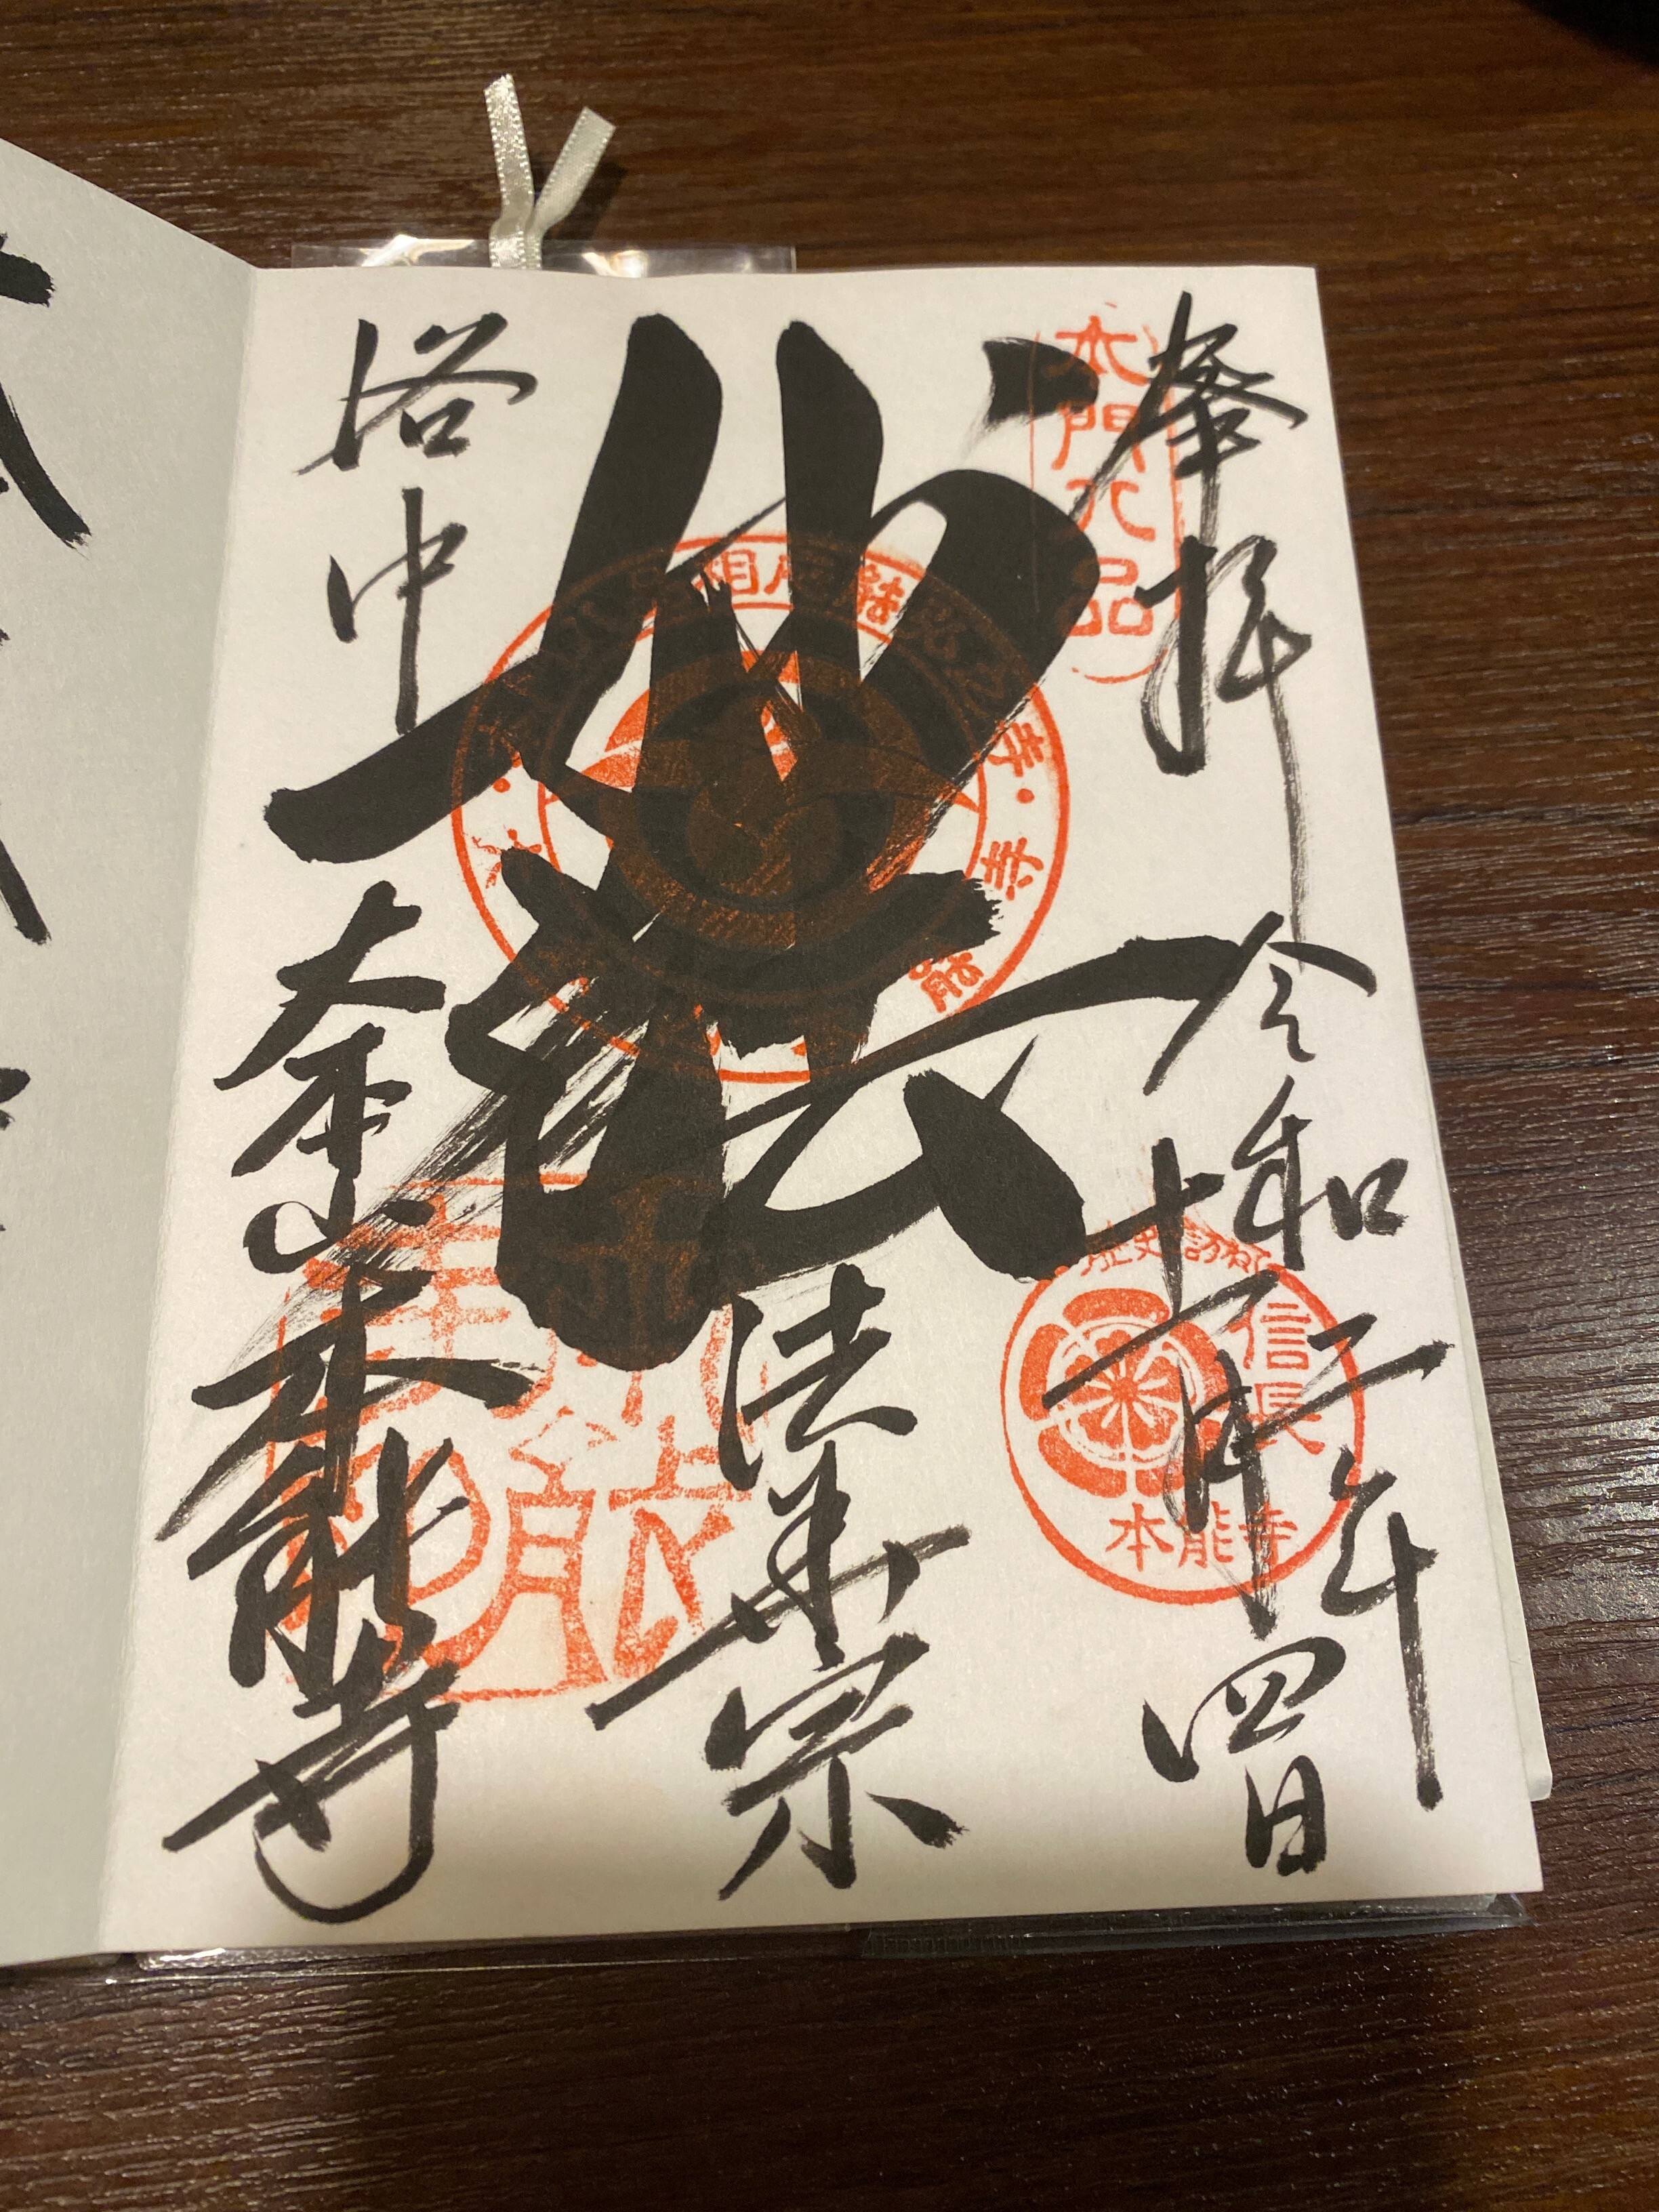 奉拝 令和二年
十一月四日
本門八品
信長
本能寺
妙法
法華宗
洛中 大本山 本能寺